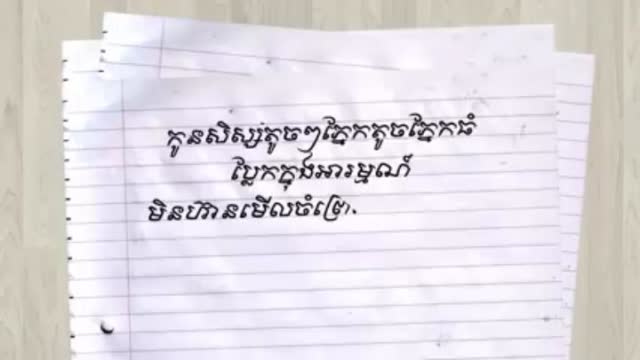 កូនសិស្សតូចៗភ្នែកតូចភ្នែកធំ
ប្លែកក្នុងអារម្មណ៍
មិនហ៊ានមើលចំ